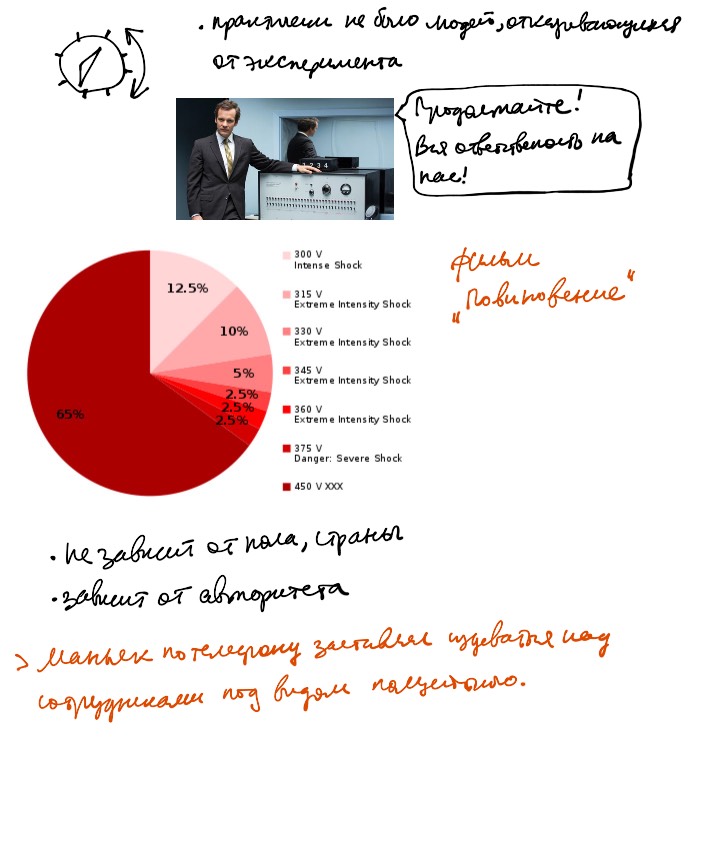 · практически не было людей, отказывающихся
от эксперимента
Продолжайте!
Вся ответственость на
нас!
1 2 3 4
300 V
Intense Shock
12.5%
315 V
Extreme Intensity Shock
10%
330 V
Extreme Intensity Shock
5%
345 V
Extreme Intensity Shock
2.5%
360 V
Extreme Intensity Shock
2.5%
2.5%
375 V
Danger: Severe Shock
65%
450 V XXX
фильм
"Повиновение"
· не зависит от пола, страны
· зависит от авторитета
> Маньяк по телефону заставлял издеваться над
сотрудниками под видом полицейского.